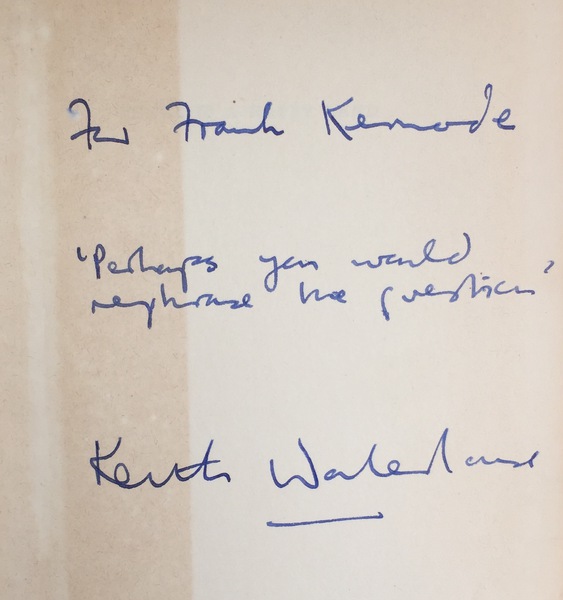 For Frank Kermode
'Perhaps you would
rephrase the question'
Keith Waterhouse